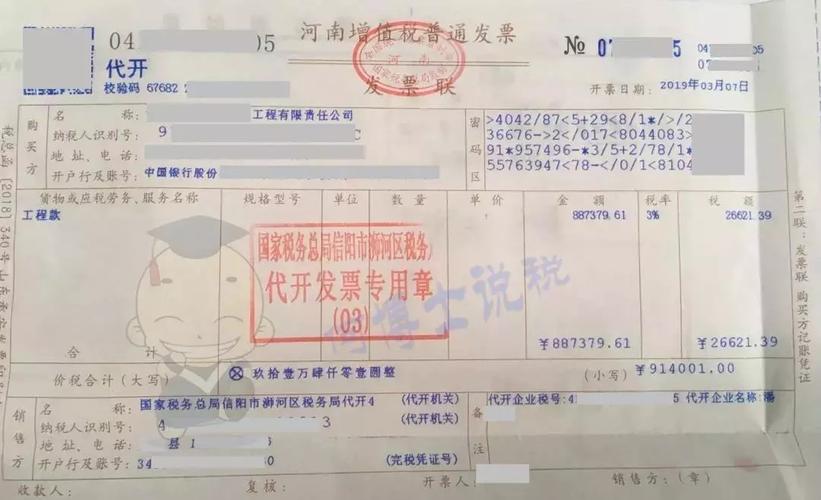 04 05 河南增值税普通发票 № 07 5 04 05
代开 07
校验码 67682 2 发票联 开票日期：2019年03月07日
全国统一发票监制章
河南
国家税务总局监制
购买方
名称： 工程有限责任公司
纳税人识别号：9 C
地址、电话：
开户行及账号：中国银行股份
密码区
>4042/87<5+29<8/1*/>/2
36676->2</017<8044083>
91*957496-*3/5+2/78/1*
55763947<78-</0/1<8104
货物或应税劳务、服务名称 规格型号 单位 数量 单价 金额 税率 税额
工程款 887379.61 3% 26621.39
国家税务总局信阳市浉河区税务
代开发票专用章
(03)
何博士说税
合计 ¥887379.61 ¥26621.39
价税合计（大写） ⊗玖拾壹万肆仟零壹圆整 （小写） ¥914001.00
销售方
名称：国家税务总局信阳市浉河区税务局代开4 (代开机关)
纳税人识别号：A 3 (代开机关)
地址、电话： 县 1 6
开户行及账号：34 0 (完税凭证号)
备注
代开企业税号：4 5 代开企业名称：潘
收款人： 复核： 开票人： 销售方：（章）
税总函〔2018〕340号
第二联：发票联 购买方记账凭证